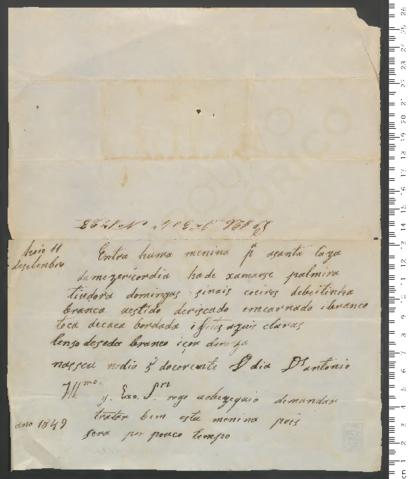 hoie 11
desetenbro
Entra huma menina pª asanta Caza
demizericordia hade xamarse palmira
tiudora domingas sinais coeiros debeitinha
branca vestido deriscado emcarnado ibranco
toca decaca bordada ifitas azuis claras
lenso deseda branco içor
nasseu nodio 5 docorente dia Dº antonio
Illmo.
y. Exo. Srs rogo aobzequio demandar
tratar bem esta menina pois
sera por pouco tempo
ano 1849